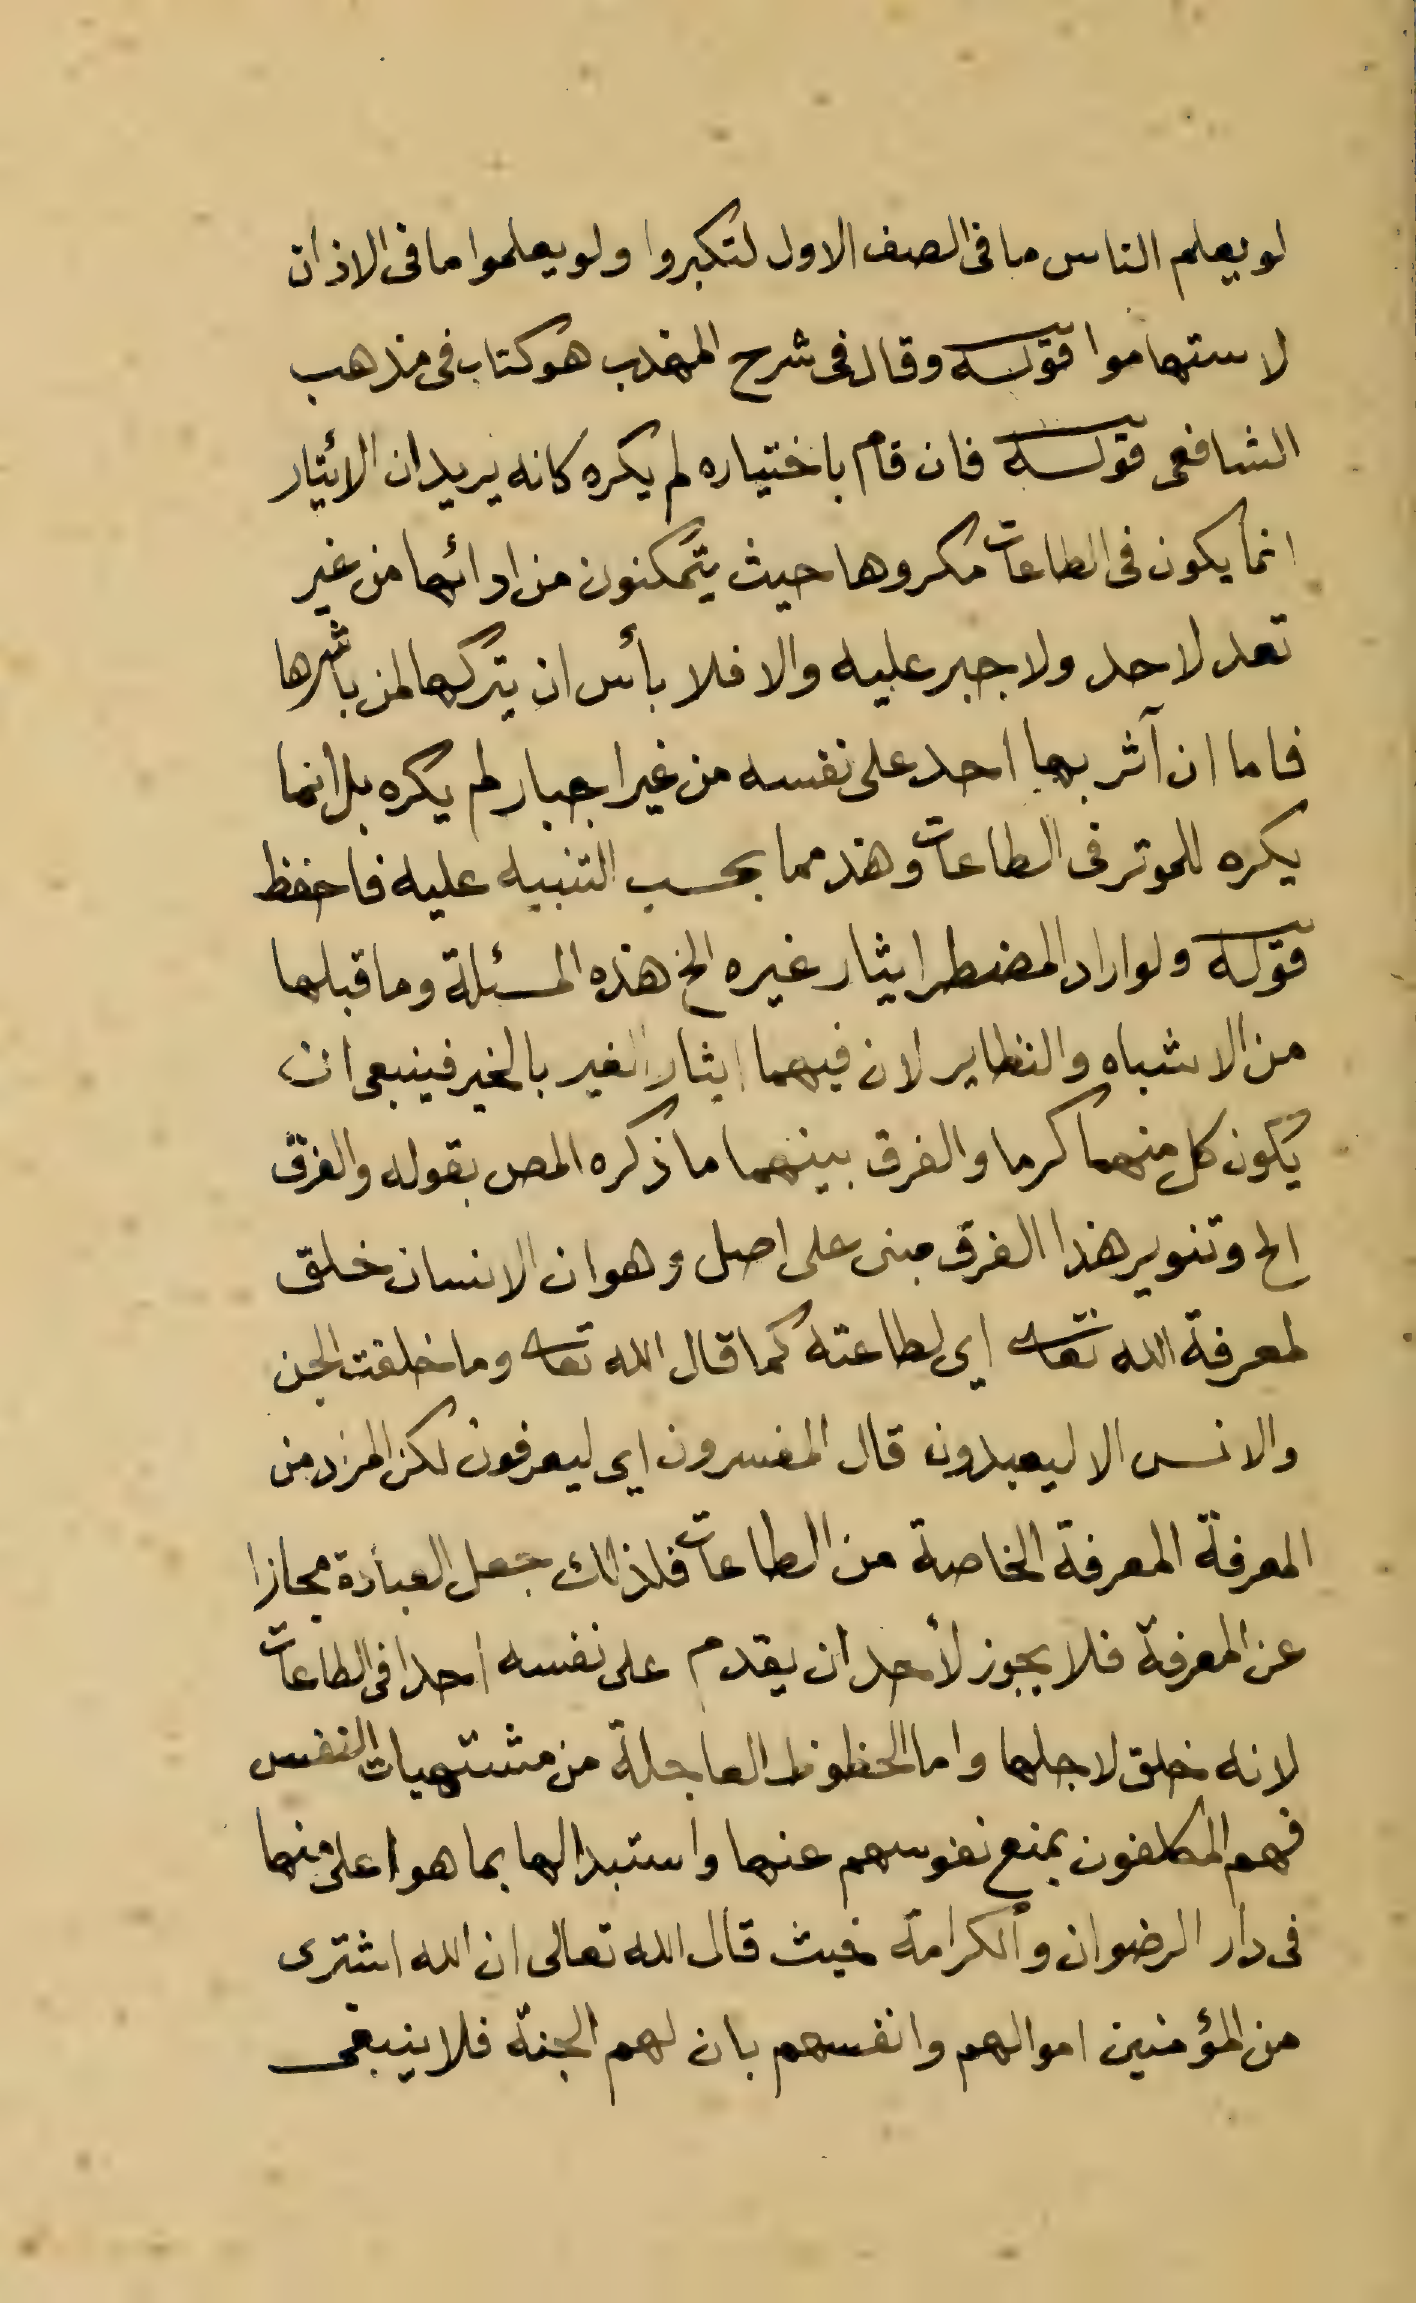 لو يعلم الناس ما فى الصف الاول لتكبروا ولو يعلموا ما فى الاذان
لاستهاموا قوله وقال فى شرح المهذب هو كتاب فى مذهب
الشافعى قوله فان قام باختياره لم يكره كانه يريد ان الأيثار
انما يكون فى الطاعات مكروها حيث يتمكنون من ادائها من غير
تعد لاحد ولا جبر عليه والا فلا بأس ان يتركها لمن باشرها
فاما ان آثر بها احد على نفسه من غير اجبار لم يكره بل انما
يكره للموثر فى الطاعات وهذ مما يحسب التنبيه عليه فاحفظ
قوله ولو اراد المضطر ايثار غيره الخ هذه المسئلة وما قبلها
من الاشباه والنظاير لان فيهما ايثار الغير بالخير فينبغى ان
يكون كل منهما كرما والفرق بينهما ما ذكره المص بقوله والفرق
الخ وتنوير هذا الفرق مبنى على اصل وهو ان الانسان خلق
لمعرفة الله تعا اى لطاعته كما قال الله تعا وما خلقت الجن
والانس الا ليعبدون قال المفسرون اى ليعرفون لكن المراد من
المعرفة المعرفة الخاصة من الطاعات فلذلك جعل العبادة مجازا
عن المعرفة فلا يجوز لأحد ان يقدم على نفسه احدا فى الطاعات
لانه خلق لاجلها واما الحظوظ العاجلة من مشتهيات النفس
فهم المكلفون بمنع نفوسهم عنها واستبدالها بما هو اعلى منها
فى دار الرضوان والكرامة حيث قال الله تعالى ان الله اشترى
من المؤمنين اموالهم وانفسهم بان لهم الجنة فلا ينبغى